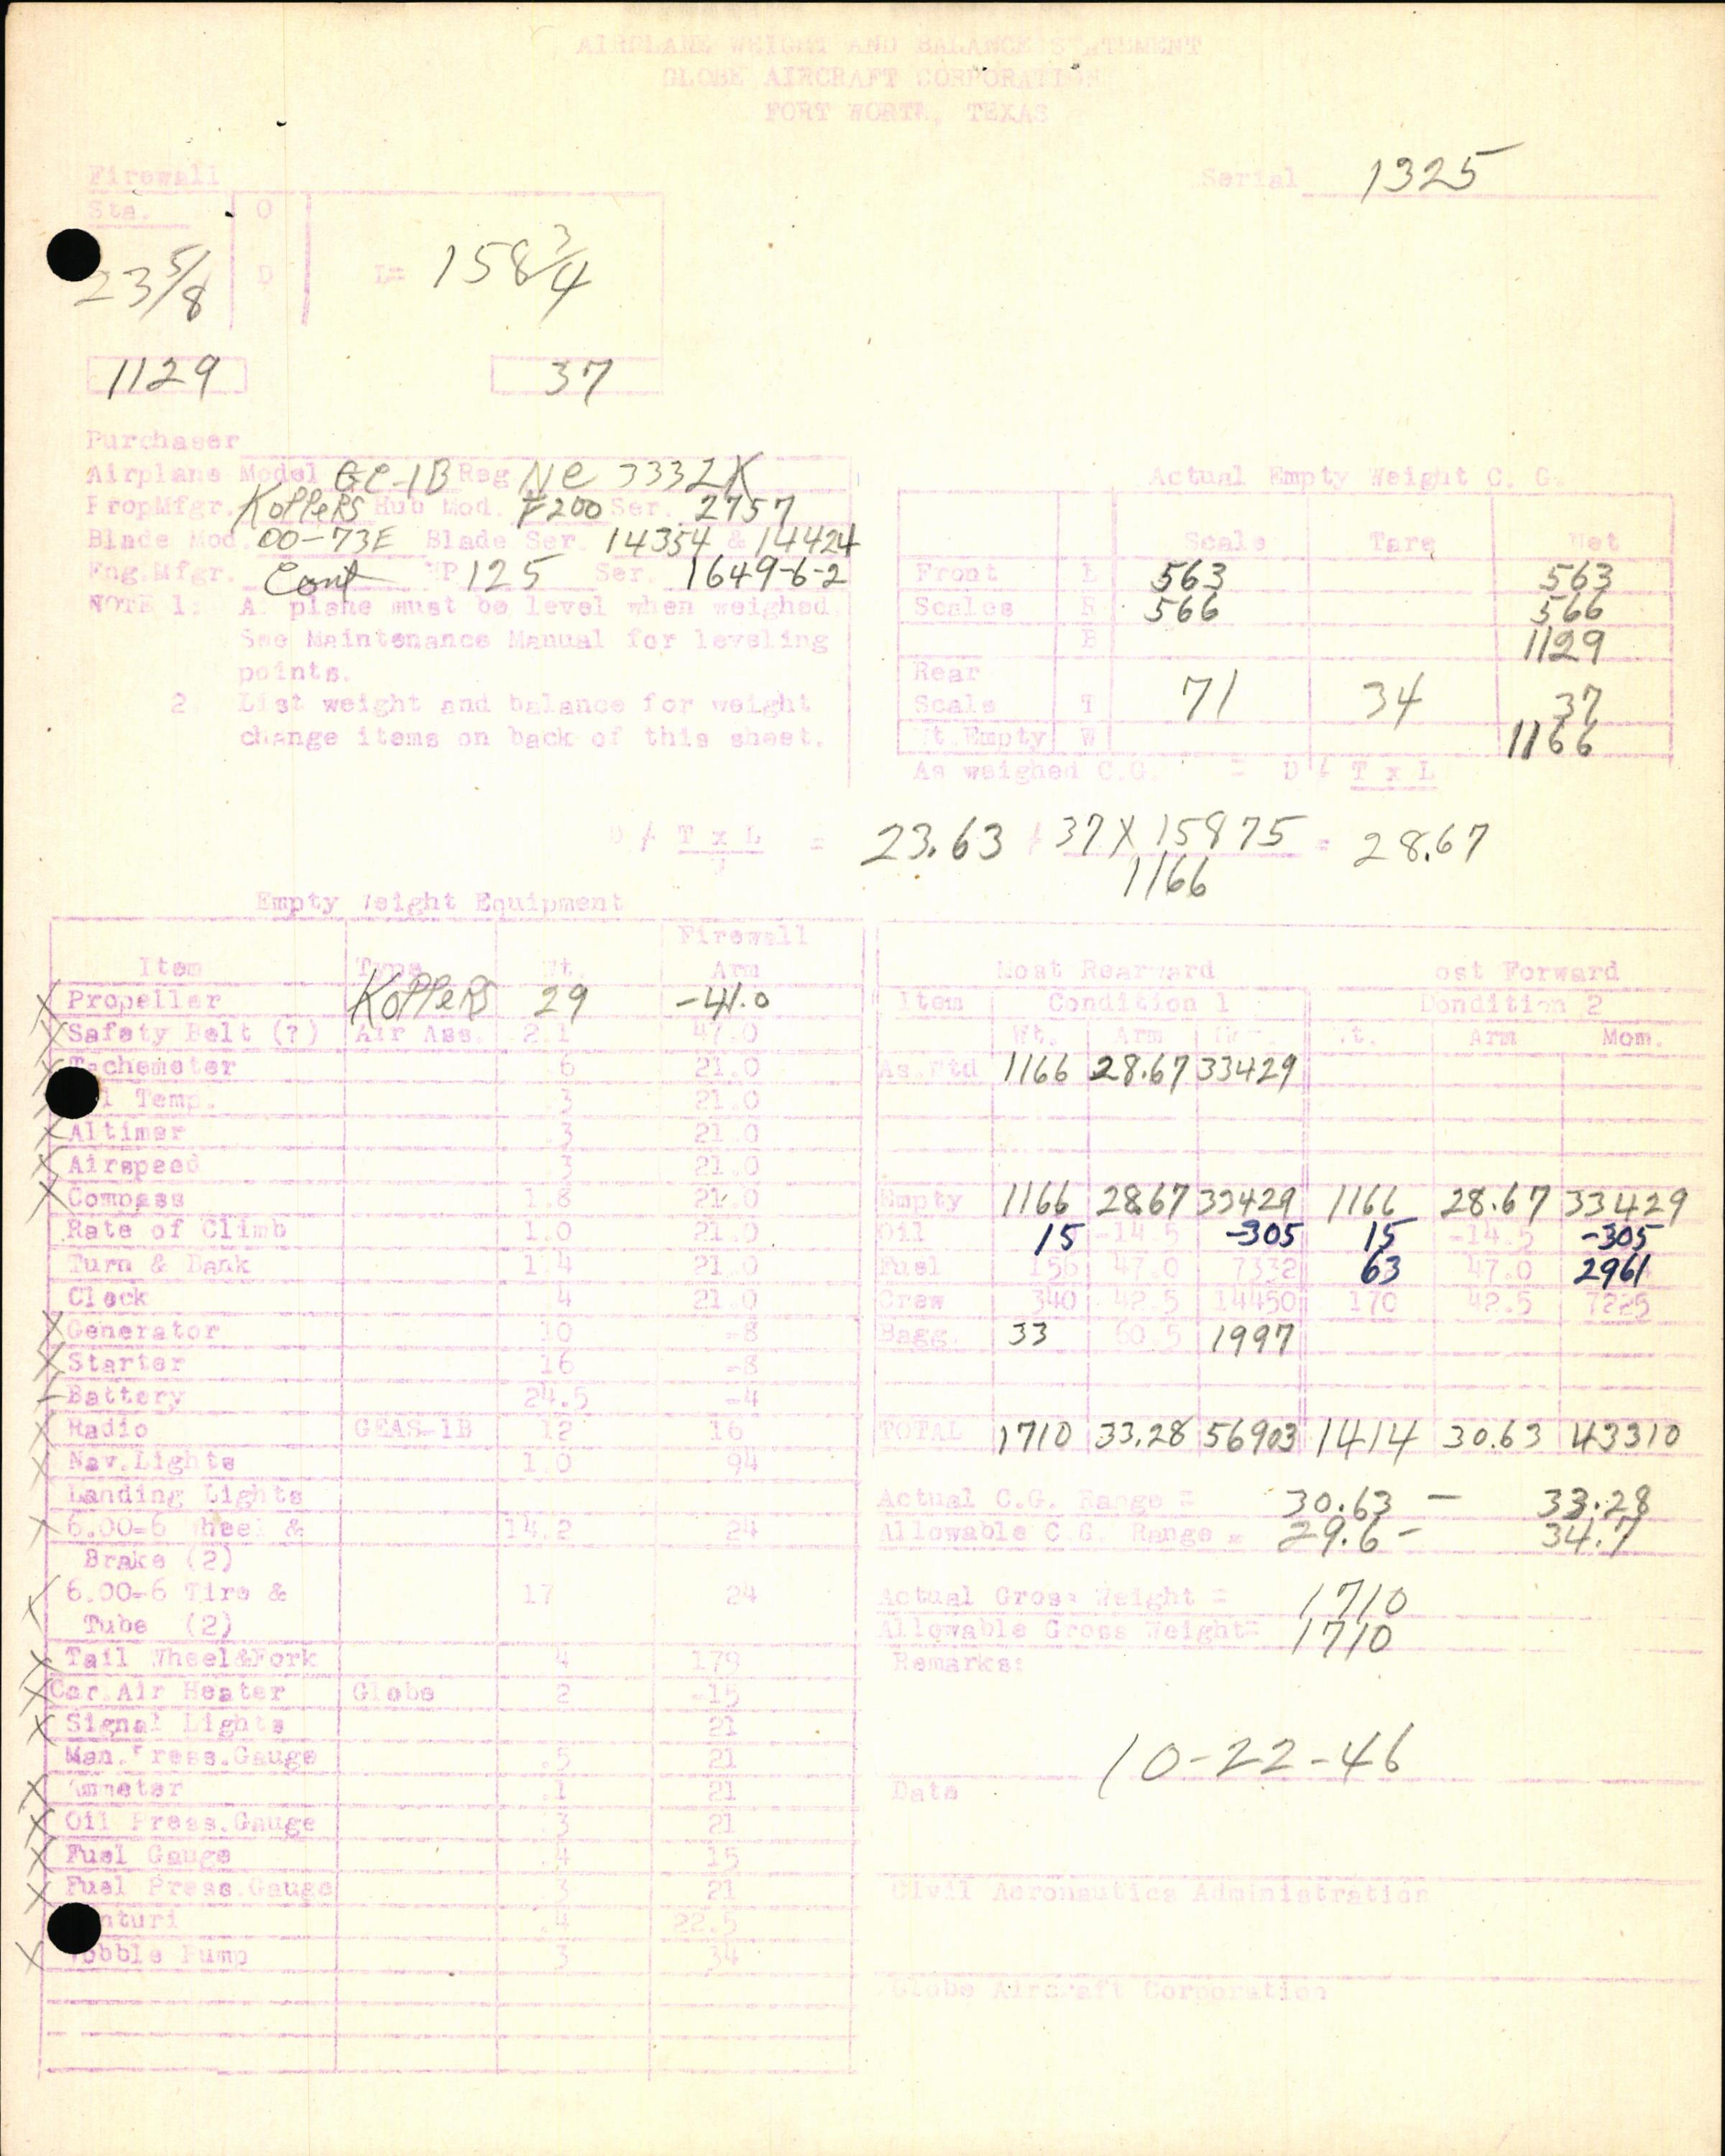 AIRPLANE WEIGHT AND BALANCE STATEMENT
GLOBE AIRCRAFT CORPORATION
FORT WORTH, TEXAS
Serial 1325
Firewall
Sta. O
23 5/8 D L= 158 3/4
1129 37
Purchaser
Airplane Model GC-1B Reg NC 3332K
PropMfgr. KOPPERS Hub Mod. F200 Ser. 2757
Blade Mod. 00-73E Blade Ser. 14354 & 14424
Eng.Mfgr. Cont HP 125 Ser. 1649-6-2
NOTE 1: A plane must be level when weighed
See Maintenance Manual for leveling
points.
2. List weight and balance for weight
change items on back of this sheet.
Actual Empty Weight C. G.
Scale Tare Net
Front L 563 563
Scales R 566 566
B 1129
Rear
Scale T 71 34 37
Wt.Empty W 1166
As weighed C.G. = D / T x L
D / T x L = 23.63 / 37 X 15875 = 28.67
1166
Empty Weight Equipment
Firewall
Item Type Wt. Arm
Propeller KOPPERS 29 -41.0
Safety Belt (?) Air Ass. 2.1 47.0
Tachometer .6 21.0
Oil Temp. .3 21.0
Altimer .3 21.0
Airspeed .3 21.0
Compass 1.8 21.0
Rate of Climb 1.0 21.0
Turn & Bank 1.4 21.0
Clock .4 21.0
Generator 10 -8
Starter 16 -8
Battery 24.5 -4
Radio GEAS-1B 12 16
Nav.Lights 1.0 94
Landing Lights
6.00-6 Wheel & 14.2 24
Brake (2)
6.00-6 Tire & 17 24
Tube (2)
Tail Wheel&Fork 4 179
Car.Air Heater Globe 2 -15
Signal Lights 21
Man.Press.Gauge .5 21
Ammeter .1 21
Oil Press.Gauge .3 21
Fuel Gauge .4 15
Fuel Press.Gauge .3 21
Venturi .4 22.5
Wobble Pump 3 34
Most Rearward Most Forward
Item Condition 1 Condition 2
Wt. Arm Mom. Wt. Arm Mom.
As Wtd 1166 28.67 33429
Empty 1166 28.67 33429 1166 28.67 33429
Oil 15 -14.5 -305 15 -14.5 -305
Fuel 156 47.0 7332 63 47.0 2961
Crew 340 42.5 14450 170 42.5 7225
Bagg. 33 60.5 1997
TOTAL 1710 33.28 56903 1414 30.63 43310
Actual C.G. Range = 30.63 - 33.28
Allowable C.G. Range = 29.6 - 34.7
Actual Gross Weight = 1710
Allowable Gross Weight= 1710
Remarks:
10-22-46
Date
Civil Aeronautics Administration
Globe Aircraft Corporation